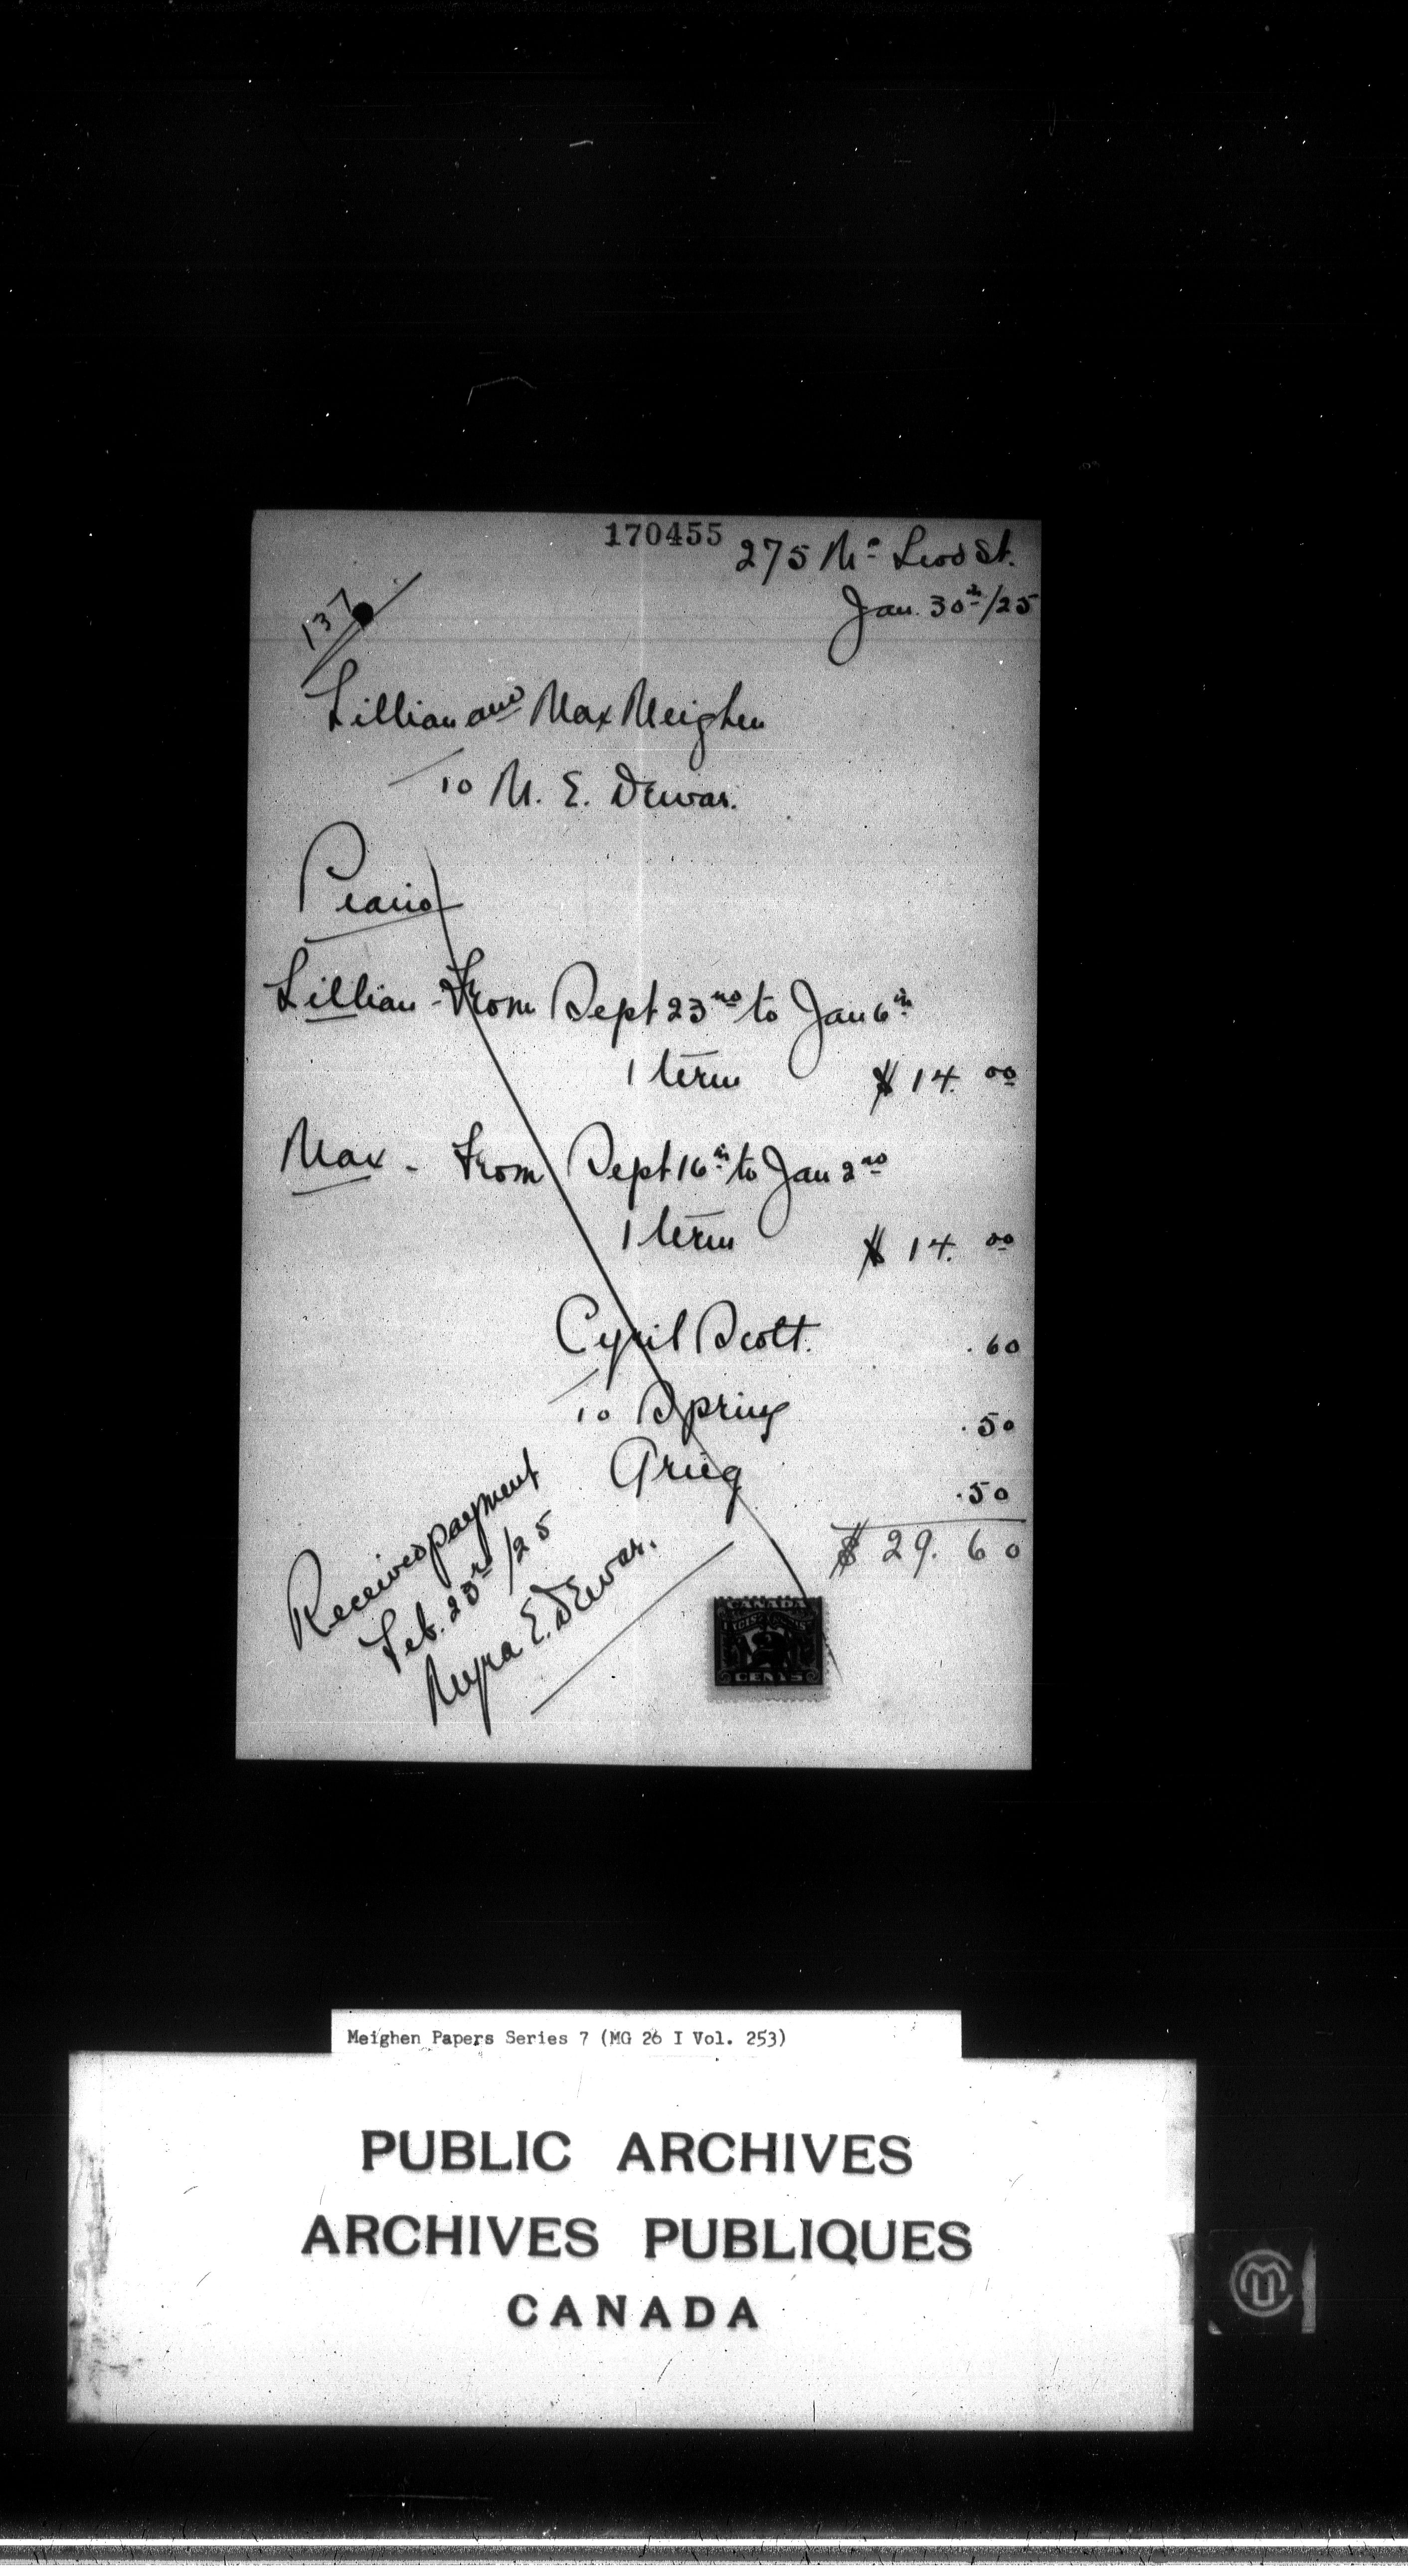 170455
275 Mc Leod St.
Jan. 30th/25
137
Lillian and Max Meighen
To M. E. Dewar.
Piano
Lillian - From Sept 23rd to Jan 6th
1 term $14.00
Max - From Sept 16th to Jan 2nd
1 term $14.00
Cyril Scott. .60
To Spring .50
Grieg .50
$29.60
Received payment
Feb. 23rd/25
Myra E. Dewar.
CANADA
2
CENTS
Meighen Papers Series 7 (MG 26 I Vol. 253)
PUBLIC ARCHIVES
ARCHIVES PUBLIQUES
CANADA